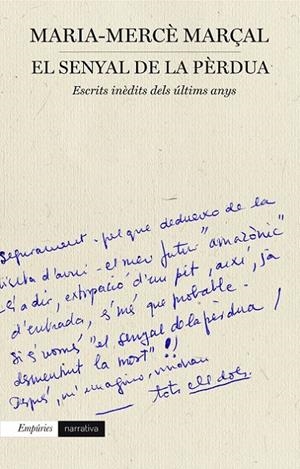 MARIA-MERCÈ MARÇAL
EL SENYAL DE LA PÈRDUA
Escrits inèdits dels últims anys
segurament - pel que dedueixo de la
visita d'avui - el meu futur "amazònic"
- és a dir, extirpació d'un pit, així, ja
d'entrada, s'més que probable.
Si és només "el senyal de la pèrdua /
desmentint la mort"!!
Després, m'imagino, vindran
tots els dols.
Empúries narrativa